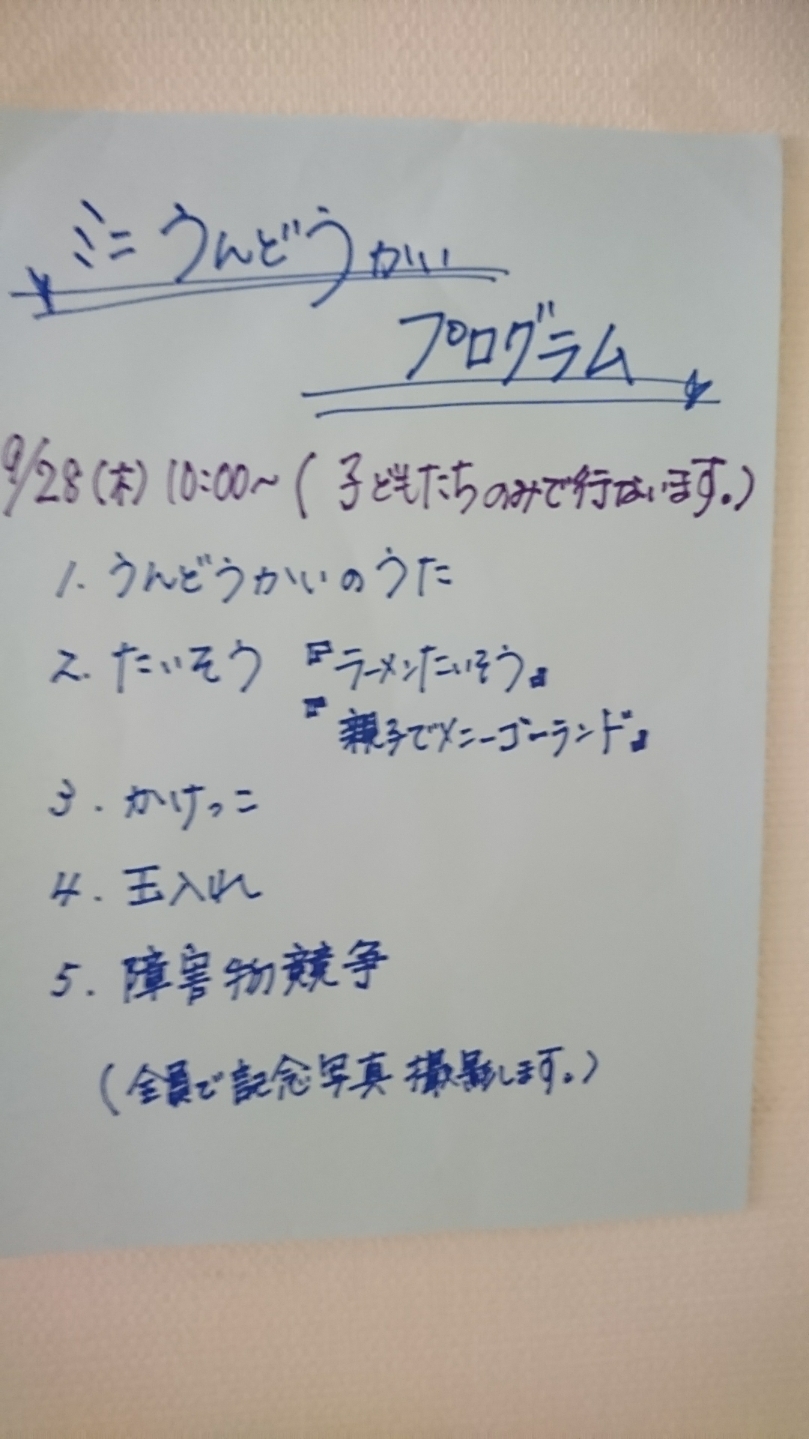 ミニうんどうかい
プログラム
9/28(木) 10:00~(子どもたちのみで行ないます。)
1. うんどうかいのうた
2. たいそう 『ラーメンたいそう』
『親子でメニーゴーランド』
3. かけっこ
4. 玉入れ
5. 障害物競争
(全員で記念写真撮影します。)